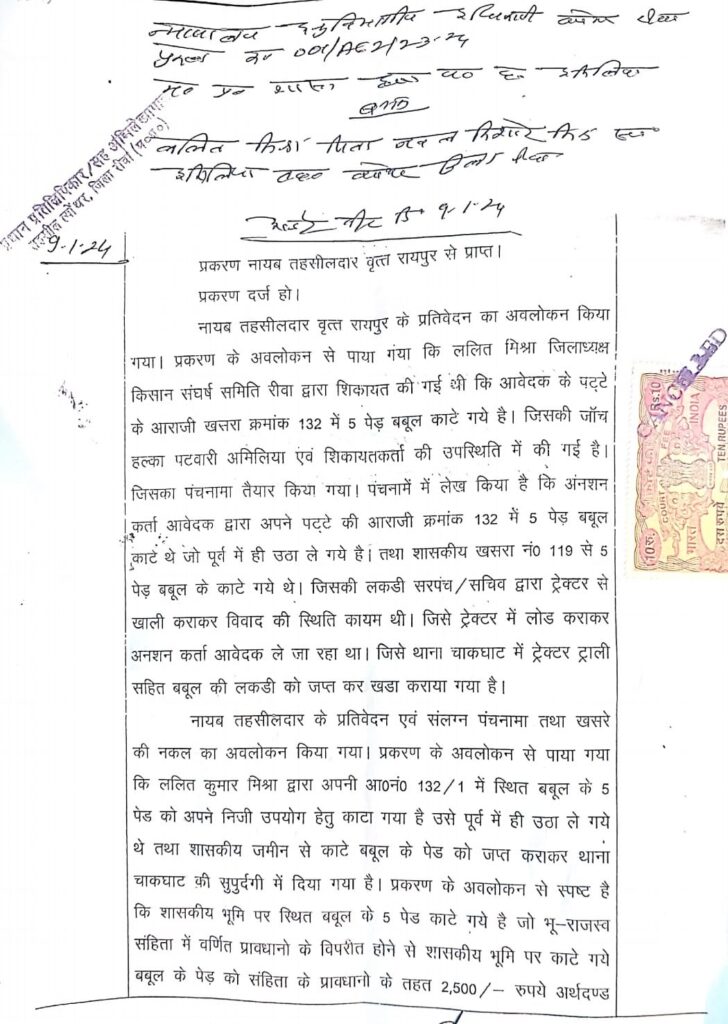 न्यायालय अनुविभागीय अधिकारी
001/A62/23-24
म0 प्र0 शासन
बनाम
ललित मिश्रा पिता नवल किशोर
9-1-24
9-1-24
प्रधान प्रतिलिपिकार/सह अभिलेखागार
जिला रीवा (म०प्र०)
प्रकरण नायब तहसीलदार वृत्त रायपुर से प्राप्त।
प्रकरण दर्ज हो।
नायब तहसीलदार वृत्त रायपुर के प्रतिवेदन का अवलोकन किया
गया। प्रकरण के अवलोकन से पाया गंया कि ललित मिश्रा जिलाध्यक्ष
किसान संघर्ष समिति रीवा द्वारा शिकायत की गई थी कि आवेदक के पट्टे
के आराजी खसरा क्रमांक 132 में 5 पेड़ बबूल काटे गये है। जिसकी जॉच
हल्का पटवारी अमिलिया एवं शिकायतकर्ता की उपस्थिति में की गई है।
जिसका पंचनामा तैयार किया गया। पंचनामें में लेख किया है कि अंनशन
कर्ता आवेदक द्वारा अपने पट्टे की आराजी क्रमांक 132 में 5 पेड़ बबूल
काटे थे जो पूर्व में ही उठा ले गये है। तथा शासकीय खसरा नं0 119 से 5
पेड़ बबूल के काटे गये थे। जिसकी लकडी सरपंच/सचिव द्वारा ट्रेक्टर से
खाली कराकर विवाद की स्थिति कायम थी। जिसे ट्रेक्टर में लोड कराकर
अनशन कर्ता आवेदक ले जा रहा था। जिसे थाना चाकघाट में ट्रेक्टर ट्राली
सहित बबूल की लकडी को जप्त कर खडा कराया गया है।
नायब तहसीलदार के प्रतिवेदन एवं संलग्न पंचनामा तथा खसरे
की नकल का अवलोकन किया गया। प्रकरण के अवलोकन से पाया गया
कि ललित कुमार मिश्रा द्वारा अपनी आ0नं0 132/1 में स्थित बबूल के 5
पेड को अपने निजी उपयोग हेतु काटा गया है उसे पूर्व में ही उठा ले गये
थे तथा शासकीय जमीन से काटे बबूल के पेड को जप्त कराकर थाना
चाकघाट की सुपुर्दगी में दिया गया है। प्रकरण के अवलोकन से स्पष्ट है
कि शासकीय भूमि पर स्थित बबूल के 5 पेड काटे गये है जो भू-राजस्व
संहिता में वर्णित प्रावधानो के विपरीत होने से शासकीय भूमि पर काटे गये
बबूल के पेड़ को संहिता के प्रावधानो के तहत 2,500/- रुपये अर्थदण्ड
CANCELLED
Rs.10
10रु.
COURT FEE
भारत INDIA
दस रुपये TEN RUPEES